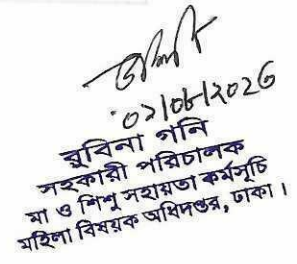 ০২/০৬/২০২৬
রুবিনা গনি
সহকারী পরিচালক
মা ও শিশু সহায়তা কর্মসূচি
মহিলা বিষয়ক অধিদপ্তর, ঢাকা।